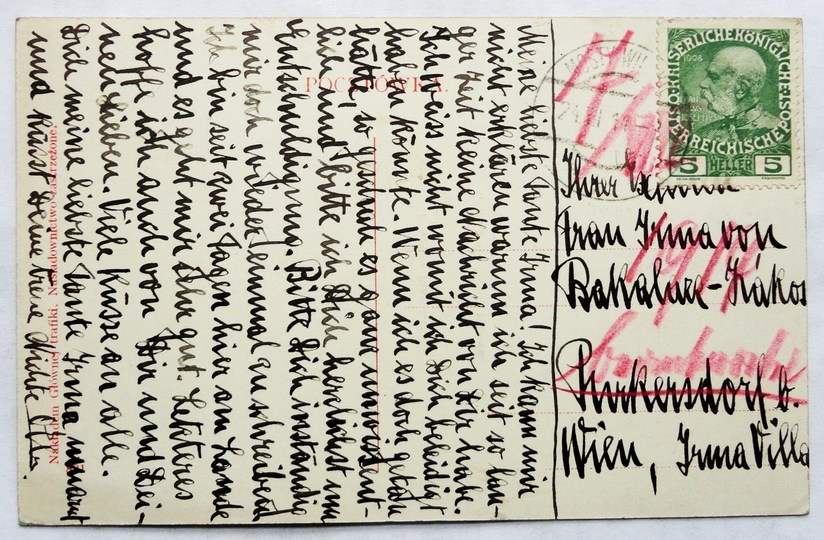 Meine liebste Tante Irma! Ich kann mir
nicht erklären warum ich seit so lan-
ger Zeit keine Nachricht von Dir habe.
Ich weiss nicht womit ich Dich beleidigt
haben könnte. Wenn ich es doch getan
hätte, so geschah es ganz unwissent-
lich und bitte ich Dich herzlichst um
Entschuldigung. Bitte Dich inständig
mir doch wieder einmal zu schreiben.
Ich bin seit zwei Tagen hier am Lande
und es geht mir sehr gut. Letzteres
hoffe ich auch von Dir und Dei-
nen Lieben. Viele Küsse an alle.
Dich meine liebste Tante Irma umarmt
und küsst Deine treue Nichte
POCZTÓWKA.
Nakładem Głównej trafiki. Naśladownictwo zastrzeżone.
KAISERLICHE KÖNIGLICHE ÖSTERREICHISCHE POST
1908
5 HELLER 5
Ihrer
Frau Irma von
Bakalarz-Kákos
Purkersdorf b.
Wien, Irma Villa